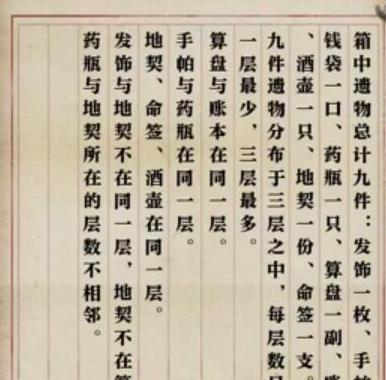 箱中遗物总计九件：发饰一枚、手帕
钱袋一口、药瓶一只、算盘一副、账
、酒壶一只、地契一份、命签一支。
九件遗物分布于三层之中，每层数
一层最少，三层最多。
算盘与账本在同一层。
手帕与药瓶在同一层。
地契、命签、酒壶在同一层。
发饰与地契不在同一层，地契不在
药瓶与地契所在的层数不相邻。